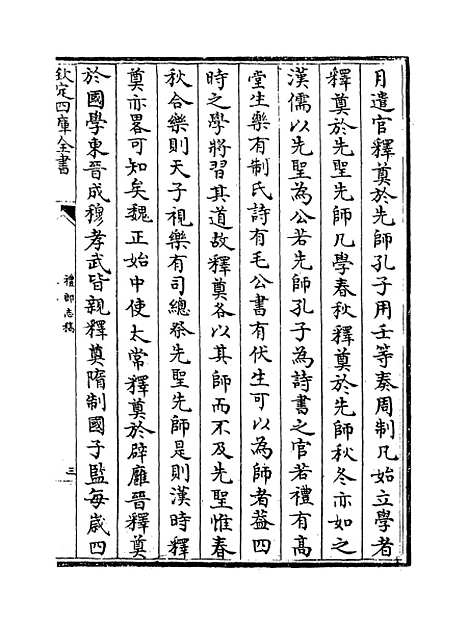 月遣官釋奠於先師孔子用壬等奏周制凡始立學者
釋奠於先聖先師凡學春秋釋奠於先師秋冬亦如之
漢儒以先聖為公若先師孔子為詩書之官若禮有高
堂生樂有制氏詩有毛公書有伏生可以為師者葢四
時之學將習其道故釋奠各以其師而不及先聖惟春
秋合樂則天子視樂有司總祭先聖先師是則漢時釋
奠亦畧可知矣魏正始中使太常釋奠於辟廱晉釋奠
於國學東晉成穆孝武皆親釋奠隋制國子監每歲四
欽定四庫全書
禮部志稿
三